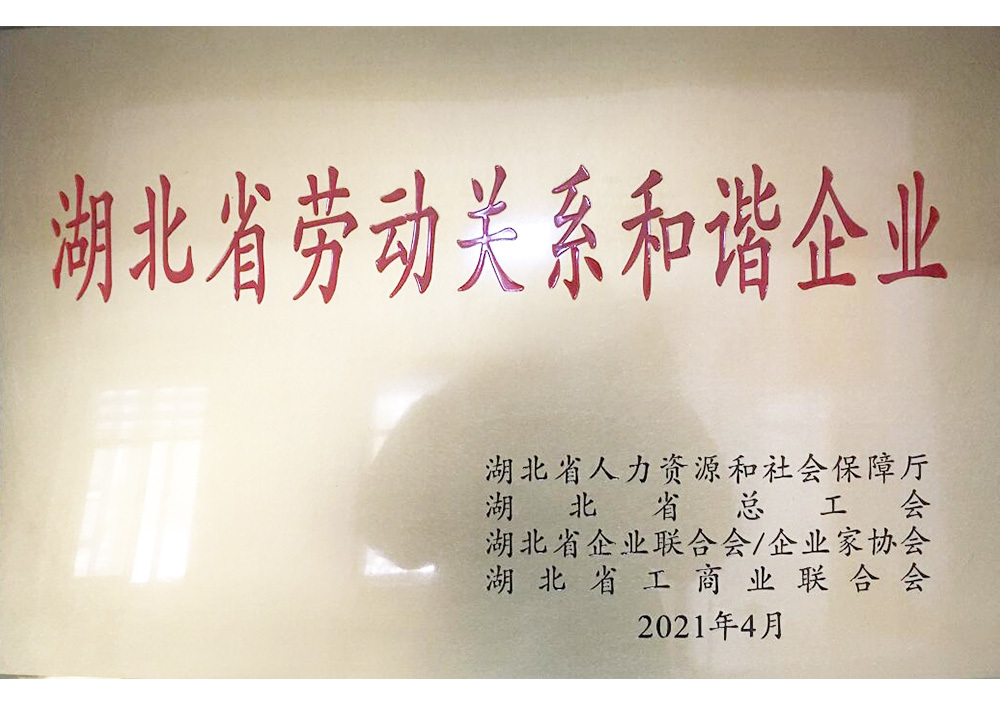 湖北省劳动关系和谐企业
湖北省人力资源和社会保障厅
湖北省总工会
湖北省企业联合会/企业家协会
湖北省工商业联合会
2021年4月